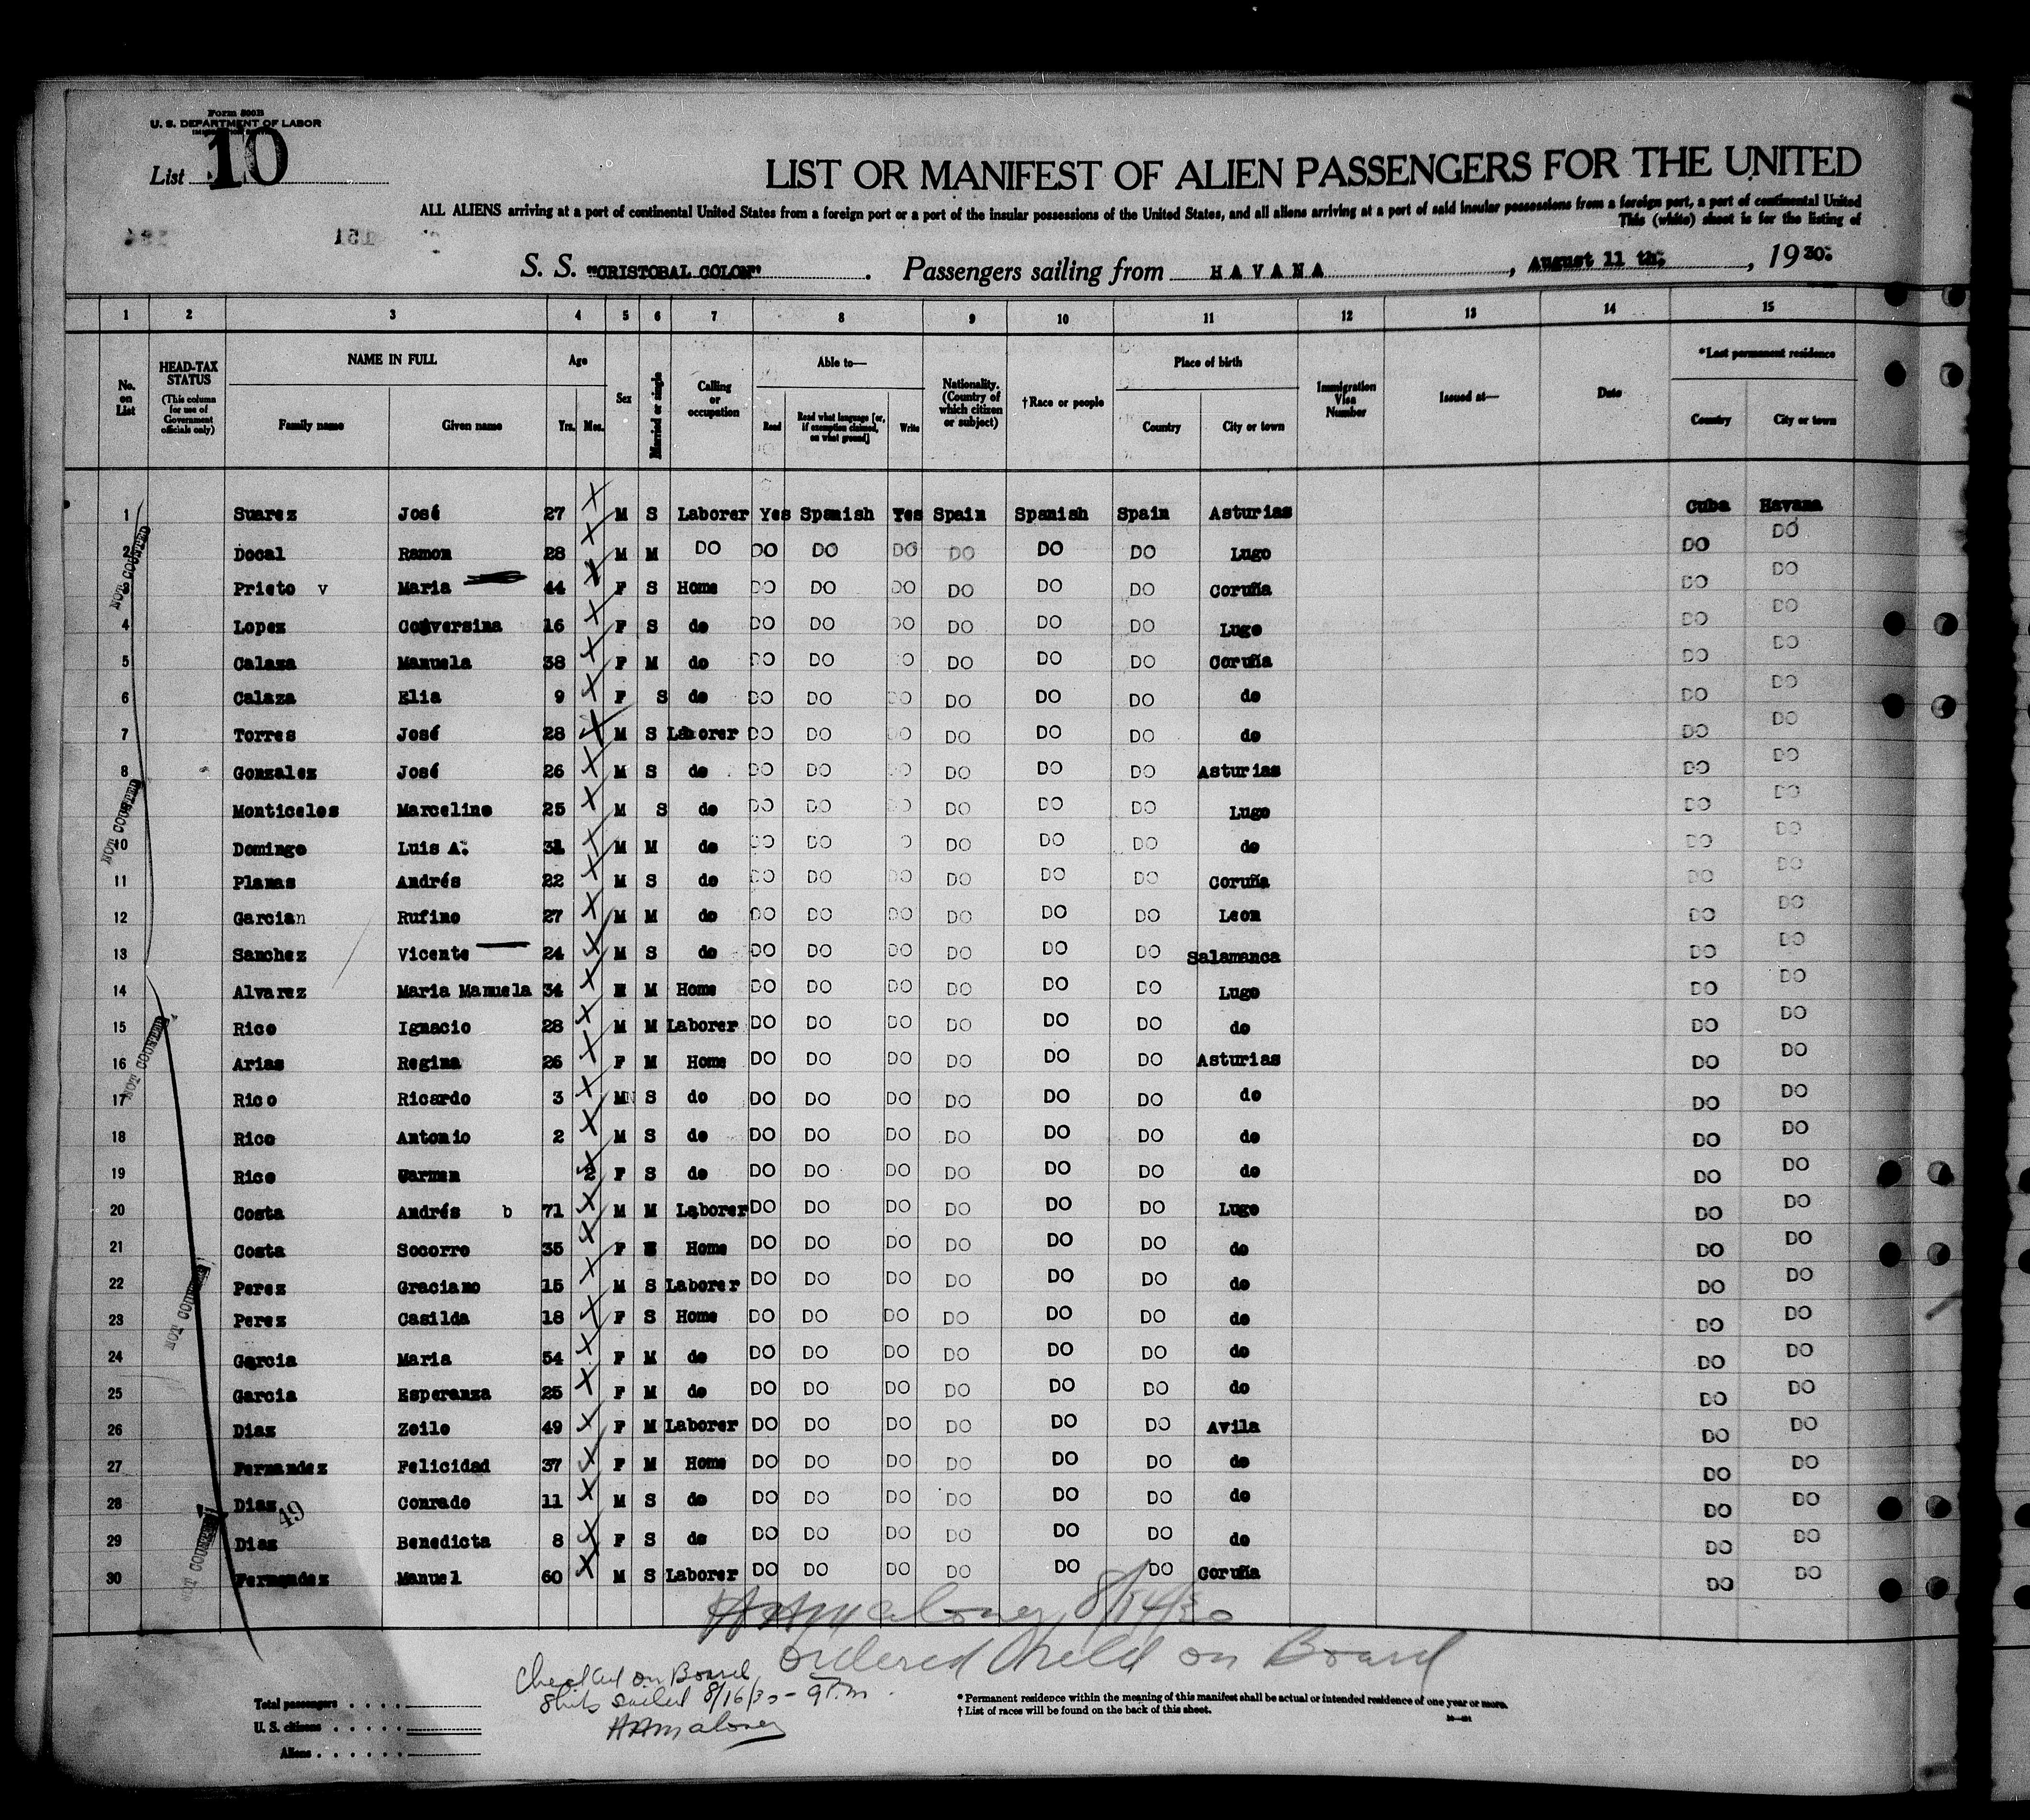 Form 500B
U. S. DEPARTMENT OF LABOR
List 10
LIST OR MANIFEST OF ALIEN PASSENGERS FOR THE UNITED
ALL ALIENS arriving at a port of continental United States from a foreign port or a port of the insular possessions of the United States, and all aliens arriving at a port of said insular possessions from a foreign port, a part of continental United
This (white) sheet is for the listing of
151
S. S. "CRISTOBAL COLON". Passengers sailing from HAVANA, August 11 th: , 1930:
1 2 3 4 5 6 7 8 9 10 11 12 13 14 15
No. on List
HEAD-TAX STATUS (This column for use of Government officials only)
NAME IN FULL
Family name Given name
Age
Yrs. Mos.
Sex
Married or single
Calling or occupation
Able to—
Read Read what language [or, if exemption claimed, on what ground] Write
Nationality. (Country of which citizen or subject)
†Race or people
Place of birth
Country City or town
Immigration Visa Number
Issued at—
Date
*Last permanent residence
Country City or town
1 Suarez José 27 M S Laborer Yes Spanish Yes Spain Spanish Spain Asturias Cuba Havana
2 Docal Ramon 28 M M DO DO DO DO DO DO DO Lugo DO DO
3 Prieto v Maria 44 F S Home DO DO DO DO DO DO Coruña DO DO
4 Lopez Conversina 16 F S do DO DO DO DO DO DO Lugo DO DO
5 Calaza Manuela 38 F M do DO DO O DO DO DO Coruña DO DO
6 Calaza Elia 9 F S do DO DO DO DO DO DO do DO DO
7 Torres José 28 M S Laborer DO DO DO DO DO DO do DO DO
8 Gonzalez José 26 M S do DO DO DO DO DO DO Asturias DO DO
Monticelos Marcelino 25 M S do DO DO DO DO DO DO Lugo DO DO
10 Domingo Luis A: 31 M M do DO DO O DO DO DO do DO DO
11 Planas Andrés 22 M S do DO DO DO DO DO DO Coruña DO DO
12 Garcian Rufino 27 M M do DO DO DO DO DO DO Leon DO DO
13 Sanchez Vicente 24 M S do DO DO DO DO DO DO Salamanca DO DO
14 Alvarez Maria Manuela 34 M Home DO DO DO DO DO DO Lugo DO DO
15 Rico Ignacio 28 M M Laborer DO DO DO DO DO DO do DO DO
16 Arias Regina 26 F M Home DO DO DO DO DO DO Asturias DO DO
17 Rico Ricardo 3 M S do DO DO DO DO DO DO do DO DO
18 Rico Antonio 2 M S do DO DO DO DO DO DO do DO DO
19 Rico Carmen 2 F S do DO DO DO DO DO DO do DO DO
20 Costa Andrés b 71 M M Laborer DO DO DO DO DO DO Lugo DO DO
21 Costa Socorro 35 F Home DO DO DO DO DO DO do DO DO
22 Perez Graciano 15 M S Laborer DO DO DO DO DO DO do DO DO
23 Perez Casilda 18 F S Home DO DO DO DO DO DO do DO DO
24 Garcia Maria 54 F M do DO DO DO DO DO DO do DO DO
25 Garcia Esperanza 25 F M do DO DO DO DO DO DO do DO DO
26 Diaz Zoilo 49 F M Laborer DO DO DO DO DO DO Avila DO DO
27 Fernandez Felicidad 37 F M Home DO DO DO DO DO DO do DO DO
28 Diaz Conrado 11 M S do DO DO DO DO DO DO do DO DO
29 Diaz Benedicta 8 F S do DO DO DO DO DO DO do DO DO
30 Fernandez Manuel 60 M S Laborer DO DO DO DO DO DO Coruña DO DO
NOT COUNTED
NOT COUNTED
NOT COUNTED
NOT COUNTED
NOT COUNTED
49
HAMaloney 8/14/30
ordered held on Board
Checked on Board
Ship sailed 8/16/30 - 9 P.m.
HAMaloney
Total passengers
U. S. citizens
Aliens
* Permanent residence within the meaning of this manifest shall be actual or intended residence of one year or more.
† List of races will be found on the back of this sheet.